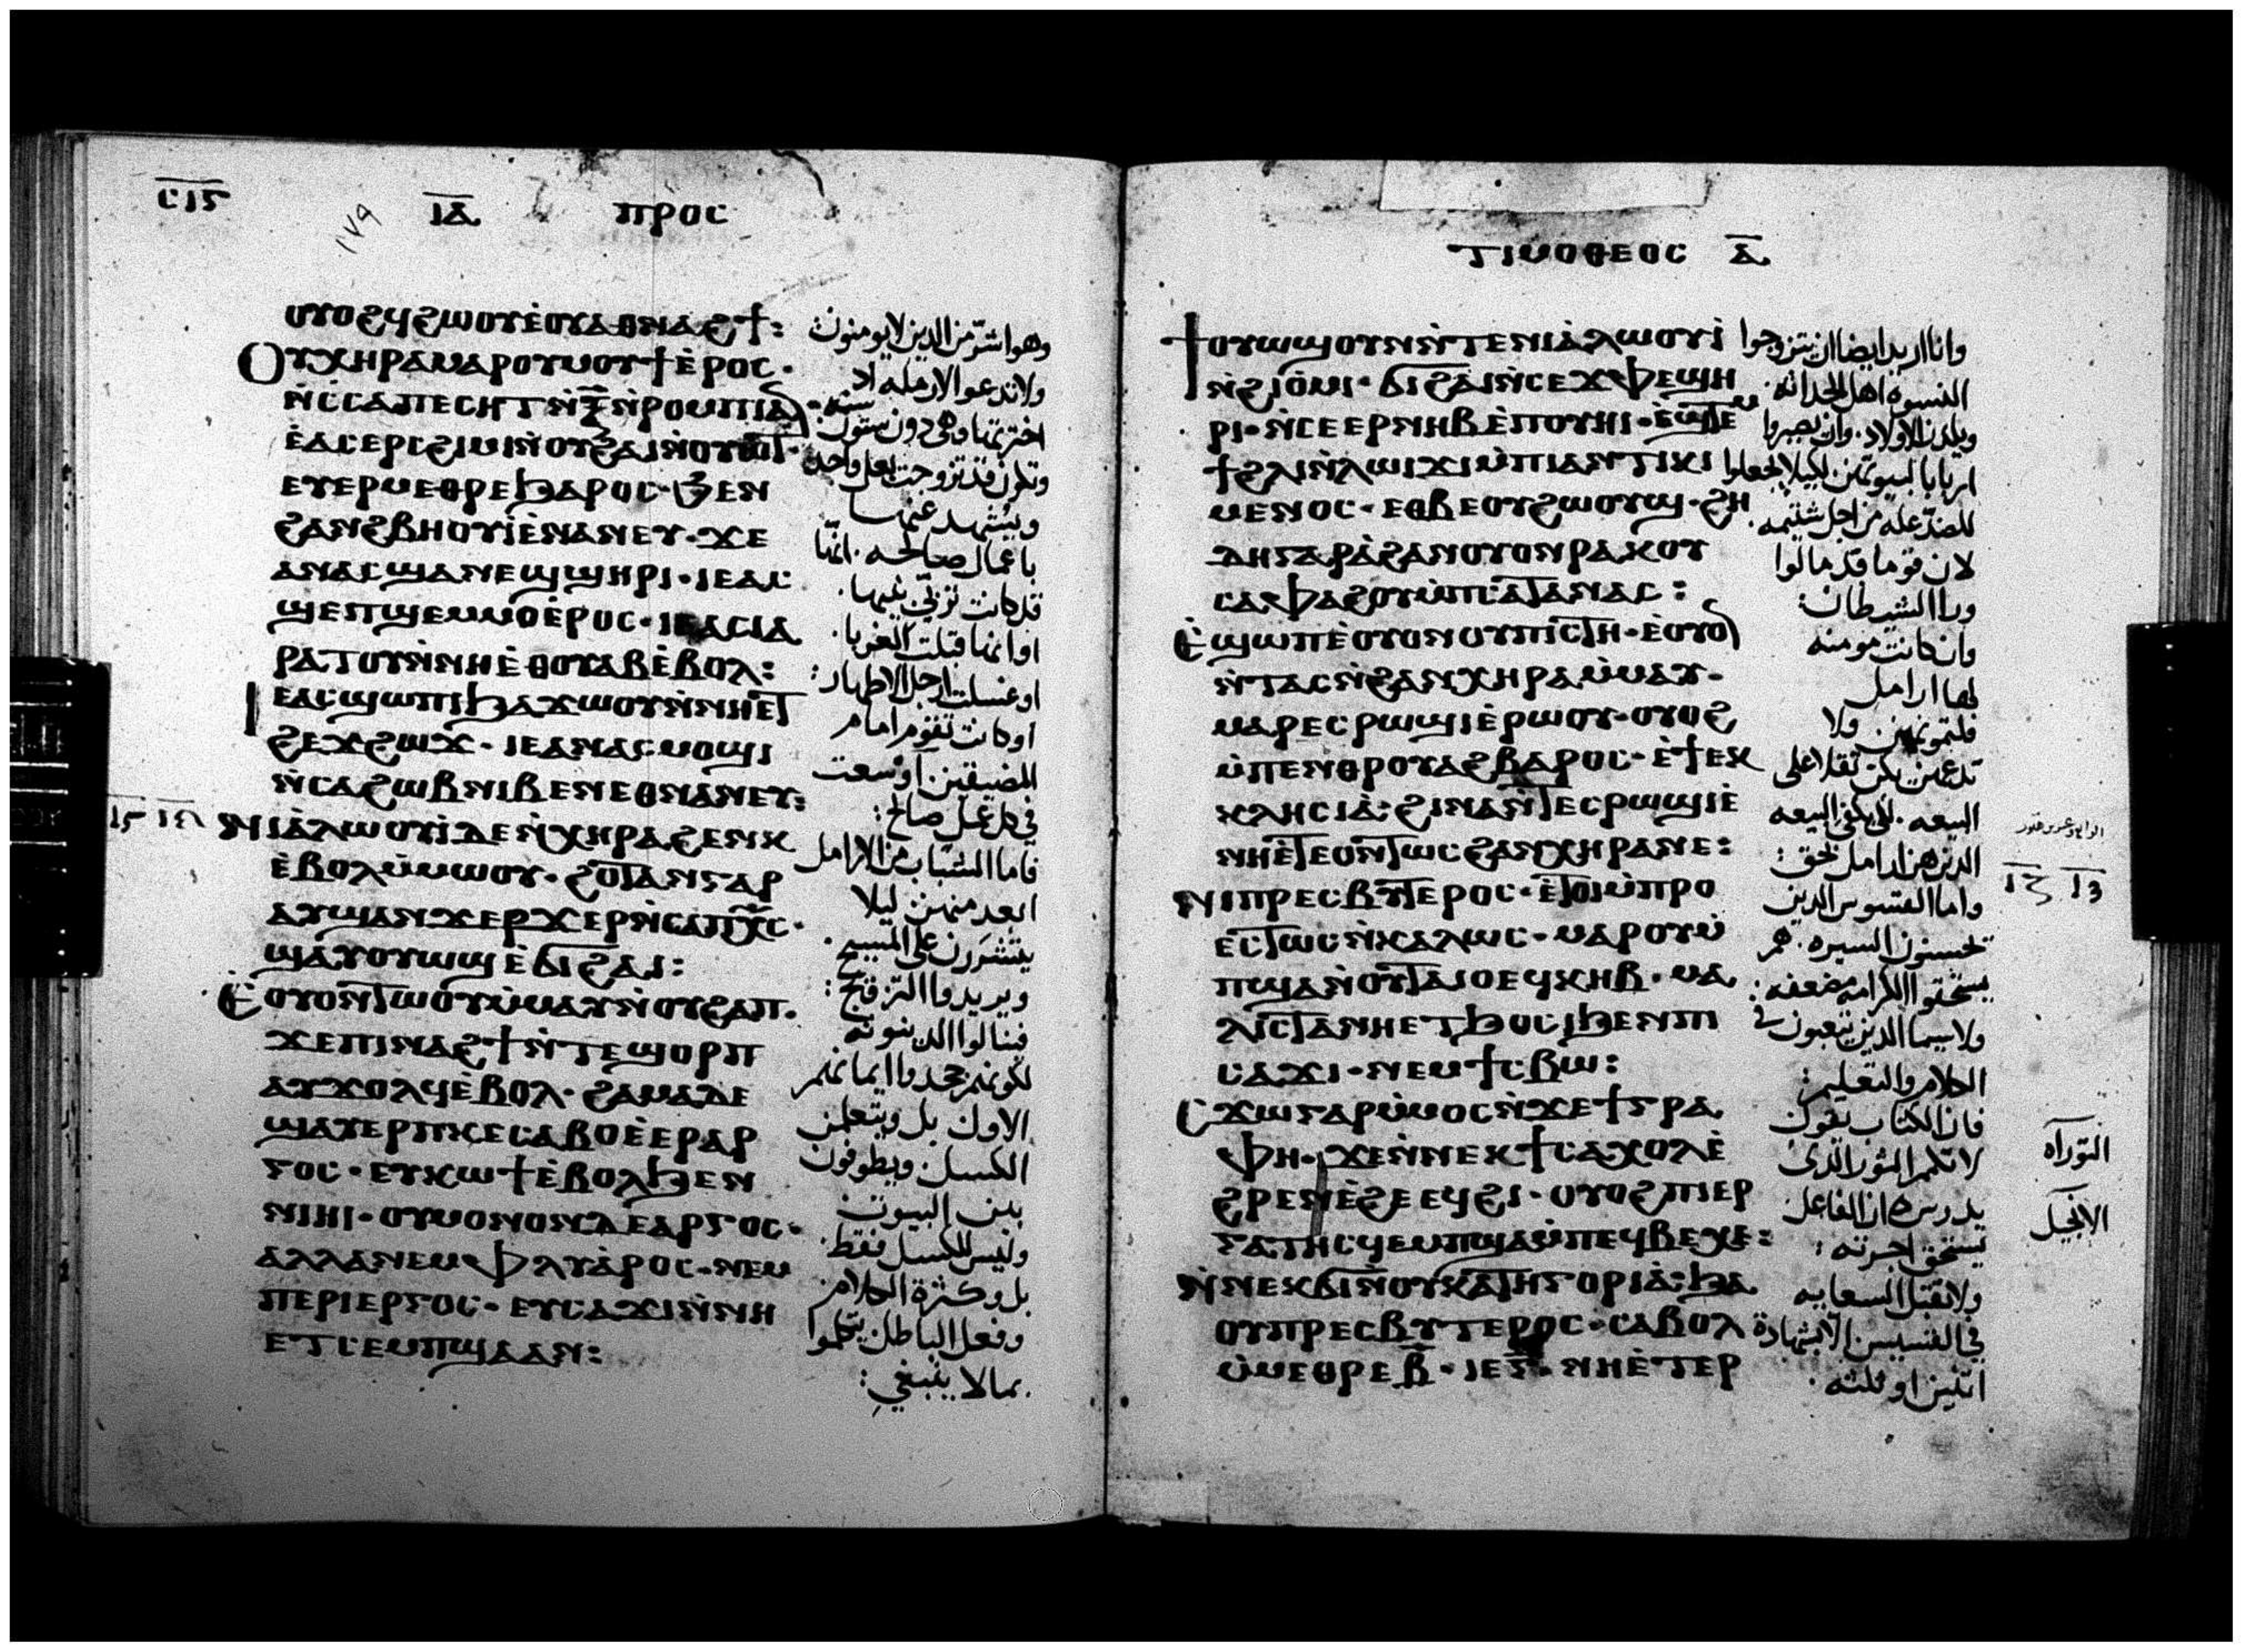 ⲒⲀ ⲠⲢⲞⲤ
ⲞⲨⲞϨ ϤϨⲰⲞⲨ ⲈⲞⲨⲀⲐⲚⲀϨϮ:
ⲞⲨⲬⲎⲢⲀ ⲘⲀⲢⲞⲨⲘⲞⲨϮ ⲈⲢⲞⲤ·
ⲚⲤⲤⲀⲠⲈⲤⲎⲦ ⲚⲜ̅ ⲚⲢⲞⲘⲠⲒ ⲀⲚ
ⲈⲀⲤⲈⲢⲤϨⲒⲘⲒ ⲚⲞⲨϨⲀⲒ ⲚⲞⲨⲰⲦ·
ⲈⲨⲈⲢⲘⲈⲐⲢⲈ ϦⲀⲢⲞⲤ· ϦⲈⲚ
ϨⲀⲚϨⲂⲎⲞⲨⲒ ⲈⲚⲀⲚⲈⲨ· ϪⲈ
ⲀⲚ ⲀⲤϢⲀⲚⲈϢ ϢⲎⲢⲒ· ⲒⲈ ⲀⲤ
ϢⲈⲠ ϢⲈⲘⲘⲞ ⲈⲢⲞⲤ· ⲒⲈ ⲀⲤⲒⲀ
ⲢⲀⲦⲞⲨ ⲚⲚⲎ ⲈⲐⲞⲨⲀⲂ ⲈⲂⲞⲖ:
ⲒⲈ ⲀⲤϢⲰⲠⲒ ϦⲀϪⲰⲞⲨ ⲚⲚⲎ ⲈⲦ
ϨⲈϪϨⲰϪ· ⲒⲈ ⲀⲚ ⲀⲤⲘⲞϢⲒ
ⲚⲤⲀ ϨⲰⲂ ⲚⲒⲂⲈⲚ ⲈⲐⲚⲀⲚⲈⲨ:
ⲚⲒⲀⲖⲰⲞⲨⲒ ⲆⲈ ⲚⲬⲎⲢⲀ ϨⲈⲚⲔ
ⲈⲂⲞⲖ ⲘⲘⲰⲞⲨ· ϨⲞⲦⲀⲚ ⲄⲀⲢ
ⲀⲨϢⲀⲚϪⲈⲢϪⲈⲢ ⲚⲤⲀ ⲠⲬ̅Ⲥ̅·
ϢⲀⲨⲞⲨⲰϢ ⲈϬⲒϨⲀⲒ:
ⲈⲞⲨⲞⲚⲦⲰⲞⲨ ⲘⲘⲀⲨ ⲚⲞⲨϨⲀⲠ·
ϪⲈ ⲠⲒⲚⲀϨϮ ⲚⲦⲈ ϢⲞⲢⲠ
ⲀⲨϪⲞⲖϤ ⲈⲂⲞⲖ· ϨⲀⲘⲀ ⲆⲈ
ϢⲀⲨⲈⲢⲠⲔⲈⲤⲀⲂⲞ ⲈⲈⲢⲀⲢ
ⲄⲞⲤ· ⲈⲨⲔⲰϮ ⲈⲂⲞⲖ ϦⲈⲚ
ⲚⲒⲎⲒ· ⲞⲨ ⲘⲞⲚⲞⲚ ⲆⲈ ⲀⲢⲄⲞⲤ·
ⲀⲖⲖⲀ ⲚⲈⲘ ⲪⲖⲨⲀⲢⲞⲤ· ⲚⲈⲘ
ⲠⲈⲢⲒⲈⲢⲄⲞⲤ· ⲈⲨⲤⲀϪⲒ ⲚⲚⲎ
ⲈⲦⲤⲈⲘⲠϢⲀ ⲀⲚ:
وهو اشر من الدين لا يومنون:
ولا تدعوا الارمله اذا
اخترتها وهي دون ستون سنه·
وتكون قد تزوجت بعل واحد
ويشهد عنها
باعمال صالحه· انها
قد كانت تربي بنيها·
او انها قبلت الغربا·
او غسلت ارجل الاطهار:
او كانت تقوم امام
المضيقين· او سعت
في كل عمل صالح:
فاما الشباب من الارامل
ابعد منهن ليلا
يتشررن على المسيح·
ويريدوا التزويج:
فينالوا الدينونه
لكونهم جحدوا ايمانهم
الاول بل ويتعلمن
الكسل ويطوفون
بين البيوت
وليس للكسل فقط·
بل وكثرة الكلام
وفعل الباطل يتكلموا
بما لا ينبغي:
ⲦⲒⲘⲞⲐⲈⲞⲤ Ⲁ̅
ϮⲞⲨⲰϢ ⲞⲨⲚ ⲚⲦⲈ ⲚⲒⲀⲖⲰⲞⲨⲒ
ⲚϨⲒⲞⲘⲒ· ϬⲒϨⲀⲒ ⲚⲤⲈϪⲪⲈ ϢⲎ
ⲢⲒ· ⲚⲤⲈⲈⲢⲚⲎⲂ ⲈⲠⲞⲨⲎⲒ· ⲈϢⲦⲈⲘ
Ϯ ϨⲖⲒ ⲚⲖⲰⲒϪⲒ ⲘⲠⲒⲀⲚⲦⲒⲔⲒ
ⲘⲈⲚⲞⲤ· ⲈⲐⲂⲈ ⲞⲨϨⲰⲞⲨϢ· ϨⲎ
ⲆⲎ ⲄⲀⲢ ⲀϨⲀⲚⲞⲨⲞⲚ ⲢⲀⲔⲞⲨ
ⲤⲀⲪⲀϨⲞⲨ ⲘⲠⲤⲀⲦⲀⲚⲀⲤ:
ⲈϢⲰⲠ ⲈⲞⲨⲞⲚ ⲞⲨⲠⲒⲤⲦⲎ· ⲈⲞⲨⲞⲚ
ⲚⲦⲀⲤ ⲚϨⲀⲚⲬⲎⲢⲀ ⲘⲘⲀⲨ·
ⲘⲀⲢⲈⲤⲢⲰϢⲒ ⲈⲢⲰⲞⲨ· ⲞⲨⲞϨ
ⲘⲠⲈⲚⲐⲢⲞⲨⲀϨⲂⲀⲢⲞⲤ· ⲈϮⲈⲔ
ⲔⲖⲎⲤⲒⲀ: ϨⲒⲚⲀ ⲚⲦⲈⲤⲢⲰϢⲒ Ⲉ
ⲚⲎ ⲈⲦⲈ ⲞⲚⲦⲰⲤ ϨⲀⲚⲬⲎⲢⲀ ⲚⲈ:
ⲚⲒⲠⲢⲈⲤⲂⲨⲦⲈⲢⲞⲤ· ⲈⲦⲞⲒ ⲘⲠⲢⲞ
ⲈⲤⲦⲰⲤ ⲚⲔⲀⲖⲰⲤ· ⲘⲀⲢⲞⲨⲘ
ⲠϢⲀ ⲚⲞⲨⲦⲀⲒⲞ ⲈϤⲔⲎⲂ· ⲘⲀ
ⲖⲒⲤⲦⲀ ⲚⲎ ⲈⲦϦⲞⲤⲒ ϦⲈⲚ ⲠⲒ
ⲤⲀϪⲒ· ⲚⲈⲘ ϮⲤⲂⲰ:
ⲤϪⲰ ⲄⲀⲢ ⲘⲘⲞⲤ ⲚϪⲈ ϮⲄⲢⲀ
ⲪⲎ· ϪⲈ ⲚⲚⲈⲔϮⲤⲀⲬⲞⲖ Ⲉ
ϨⲢⲈⲚ ⲈϨⲈ ⲈϤϨⲒ· ⲞⲨⲞϨ ⲠⲒⲈⲢ
ⲄⲀⲦⲎⲤ ϤⲈⲘⲠϢⲀ ⲘⲠⲈϤⲂⲈⲬⲈ:
ⲚⲚⲈⲔϬⲒ ⲚⲞⲨⲔⲀⲦⲎⲄⲞⲢⲒⲀ: ϦⲀ
ⲞⲨⲠⲢⲈⲤⲂⲨⲦⲈⲢⲞⲤ· ⲤⲀⲂⲞⲖ
ⲘⲘⲈⲐⲢⲈ Ⲃ̅· ⲒⲈ Ⲅ̅· ⲚⲎ ⲈⲦⲈⲢ
وانا اريد ايضا ان يتزوجوا
النسوه اهل الحداثه·
ويلدن الاولاد· وان يصيروا
اربابا لبيوتهن· لكيلا يجعلوا
للضد عله من اجل شتيمه·
لان قوما قد مالوا
ورا الشيطان:
وان كانت مومنه
لها ارامل
فلتمونهن ولا
تدعهن يكن ثقلا على
البيعه· لكي يكفي البيعه
الذين هن ارامل بحق:
واما القسوس الذين
يحسنون السيره· هم
يستحقوا الكرامه مضعفه:
ولا سيما الذين يتعبون في
الكلام والتعليم:
فان الكتاب يقول
لا تكلم الثور الذي
يدرس· وان الفاعل
يستحق اجرته:
ولا تقبل السعايه
في القسيس الا بشهادة
اثنين او ثلثه·
التوراه
الانجيل